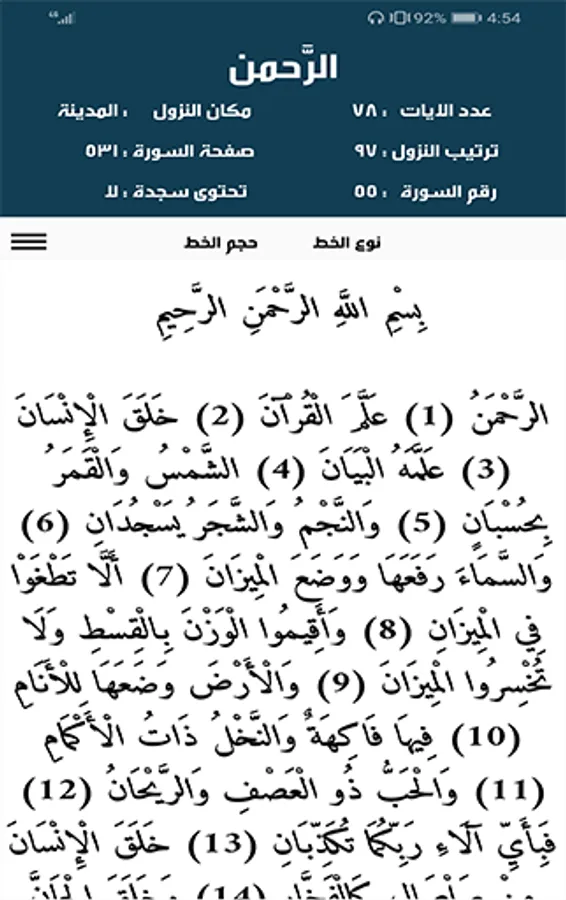 4G 92% 4:54
الرَّحمن
عدد الايات : ٧٨ مكان النزول : المدينة
ترتيب النزول : ٩٧ صفحة السورة : ٥٣١
رقم السورة : ٥٥ تحتوى سجدة : لا
نوع الخط حجم الخط
بِسْمِ اللَّهِ الرَّحْمَنِ الرَّحِيمِ
الرَّحْمَنُ (1) عَلَّمَ الْقُرْآنَ (2) خَلَقَ الْإِنْسَانَ
(3) عَلَّمَهُ الْبَيَانَ (4) الشَّمْسُ وَالْقَمَرُ
بِحُسْبَانٍ (5) وَالنَّجْمُ وَالشَّجَرُ يَسْجُدَانِ (6)
وَالسَّمَاءَ رَفَعَهَا وَوَضَعَ الْمِيزَانَ (7) أَلَّا تَطْغَوْا
فِي الْمِيزَانِ (8) وَأَقِيمُوا الْوَزْنَ بِالْقِسْطِ وَلَا
تُخْسِرُوا الْمِيزَانَ (9) وَالْأَرْضَ وَضَعَهَا لِلْأَنَامِ
(10) فِيهَا فَاكِهَةٌ وَالنَّخْلُ ذَاتُ الْأَكْمَامِ
(11) وَالْحَبُّ ذُو الْعَصْفِ وَالرَّيْحَانُ (12)
فَبِأَيِّ آلَاءِ رَبِّكُمَا تُكَذِّبَانِ (13) خَلَقَ الْإِنْسَانَ
مِنْ صَلْصَالٍ كَالْفَخَّارِ (14) وَخَلَقَ الْجَانَّ